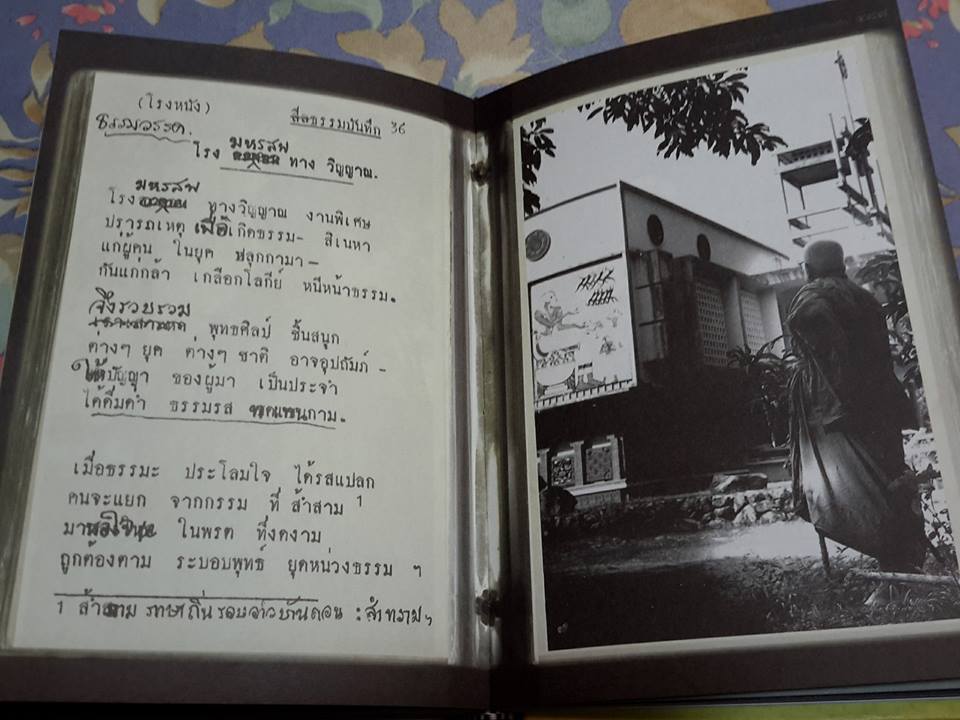 (โรงหนัง) ศีลธรรมบันทึก 36
ธรรมวรรค.
โรง มหรสพ ทาง วิญญาณ.
โรง มหรสพ ทางวิญญาณ งานพิเศษ
ปรารภเหตุ เพื่อเกิดธรรม- สิเนหา
แก่ผู้คน ในยุค ปลุกกามา-
กันแก่กล้า เกลือกโลกีย์ หนีหน้าธรรม.
จึงรวบรวม พุทธศิลป์ ชั้นสนุก
ต่างๆ ยุค ต่างๆ ชาติ อาจอุปถัมภ์-
ให้ปัญญา ของผู้มา เป็นประจำ
ได้ดื่มด่ำ ธรรมรส ทดแทนกาม.
เมื่อธรรมะ ประโลมใจ ได้รสแปลก
คนจะแยก จากกรรม ที่ ส่ำสาม 1
มาพอใจ ในพรต ที่งดงาม
ถูกต้องตาม ระบอบพุทธ์ ยุคหน่วงธรรม ฯ
1 ส่ำสาม ภาษาถิ่นรอบอ่าวบ้านดอน :